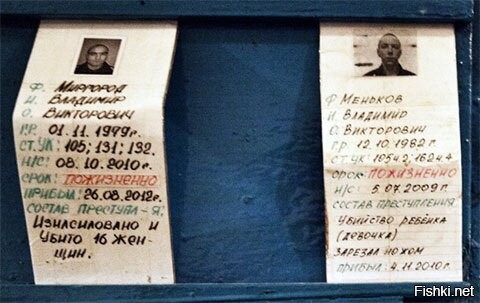 Ф. Миргород
И. Владимир
О. Викторович
Г.Р. 01.11.1979г.
СТ.УК: 105; 131; 132.
Н/С: 08.10.2010г.
СРОК: ПОЖИЗНЕННО
ПРИБЫЛ: 26.08.2012г.
СОСТАВ ПРЕСТУПЛ-Я:
Изнасиловано и
Убито 16 жен-
щин.
Ф Меньков
И. Владимир
О. Викторович
ГР. 12.10.1982 г.
СТ.УК: 105ч2; 162ч4
СРОК: ПОЖИЗНЕННО
Н/С: 5.07.2009 г.
СОСТАВ ПРЕСТУПЛЕНИЯ
УБИЙСТВО РЕБЁНКА
(ДЕВОЧКА)
ЗАРЕЗАЛ НОЖОМ
ПРИБЫЛ: 4.11.2010г.
Fishki.net